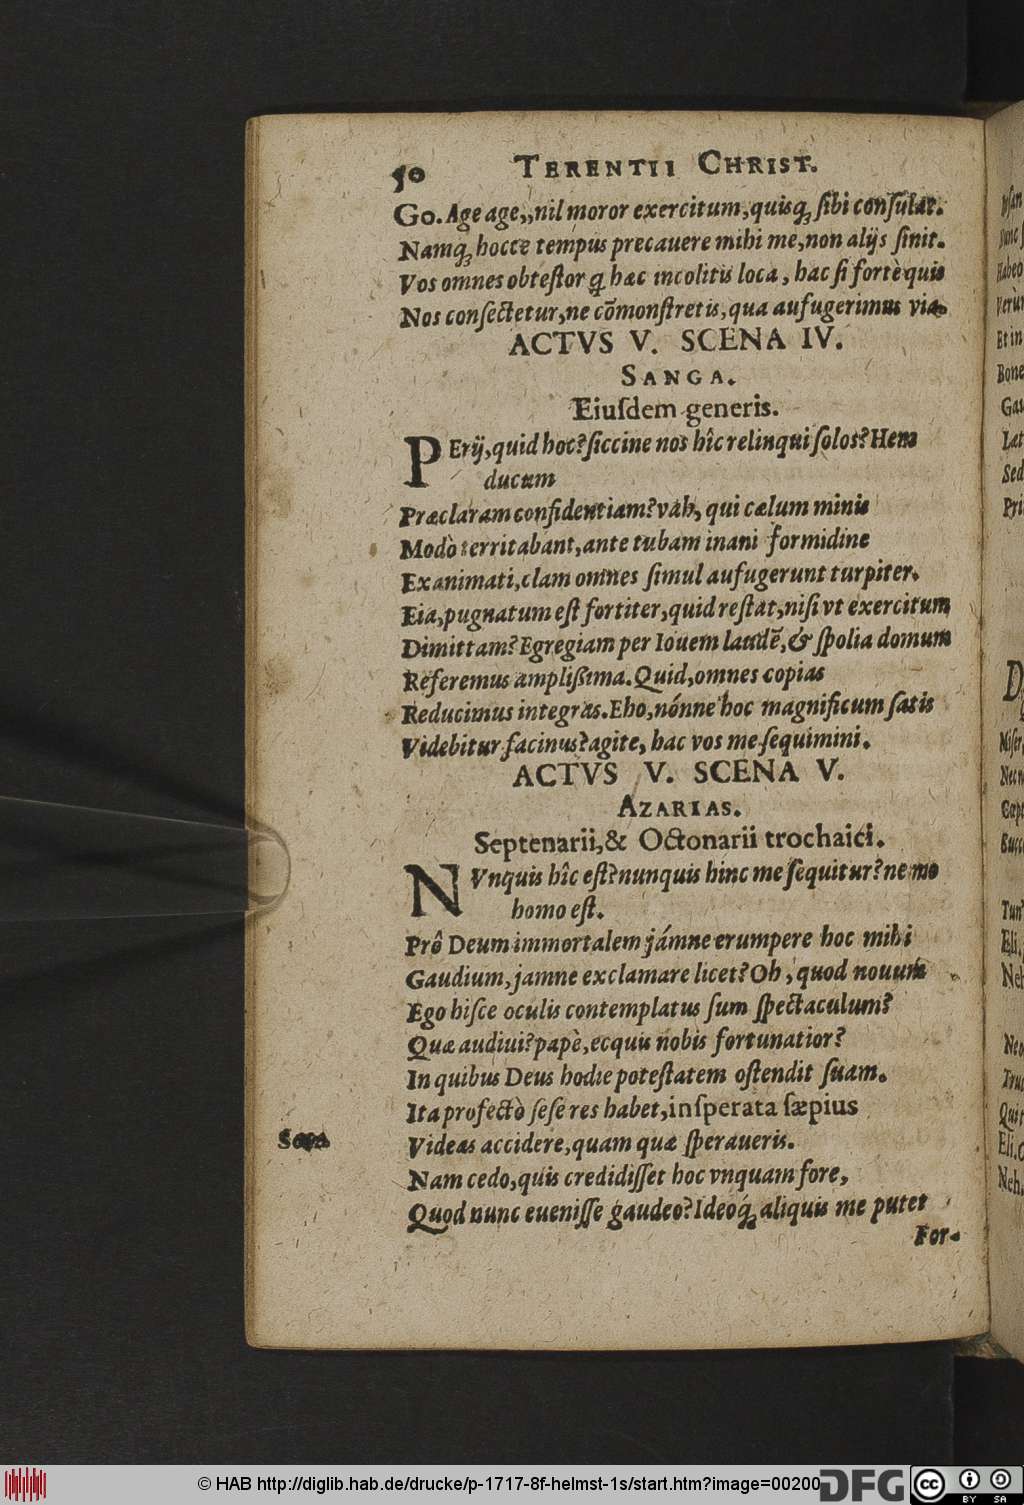 50 TERENTII CHRIST.
Go. Age age,, nil moror exercitum, quisq; ſibi conſulat.
Namq; hocce tempus precauere mihi me, non alijs ſinit.
Vos omnes obteſtor q hac incolitis loca, hac ſi fortè quis
Nos conſectetur, ne cōmonſtretis, qua aufugerimus via.
ACTVS V. SCENA IV.
SANGA.
Eiuſdem generis.
PErij, quid hoc? ſiccine nos hîc relinqui ſolos? Hem
ducum
Præclaram confidentiam? vah, qui cælum minis
Modò territabant, ante tubam inani formidine
Exanimati, clam omnes ſimul aufugerunt turpiter.
Eia, pugnatum eſt fortiter, quid reſtat, niſi vt exercitum
Dimittam? Egregiam per Iouem laudē, & ſpolia domum
Referemus amplißima. Quid, omnes copias
Reducimus integras. Eho, nónne hoc magnificum ſatis
Videbitur facinus? agite, hac vos me ſequimini.
ACTVS V. SCENA V.
AZARIAS.
Septenarii, & Octonarii trochaici.
NVnquis hîc eſt? nunquis hinc me ſequitur? nemo
homo eſt.
Prô Deum immortalem jámne erumpere hoc mihi
Gaudium, jamne exclamare licet? Oh, quod nouum
Ego hiſce oculis contemplatus ſum ſpectaculum?
Quæ audiui? papè, ecquis nobis fortunatior?
In quibus Deus hodie poteſtatem oſtendit ſuam.
Ita profectò ſeſe res habet, inſperata ſæpius
Videas accidere, quam quæ ſperaueris.
Nam cedo, quis credidiſſet hoc vnquam fore,
Quod nunc eueniſſe gaudeo? Ideoq́; aliquis me putet
For-
© HAB http://diglib.hab.de/drucke/p-1717-8f-helmst-1s/start.htm?image=00200
DFG
cc
BY SA